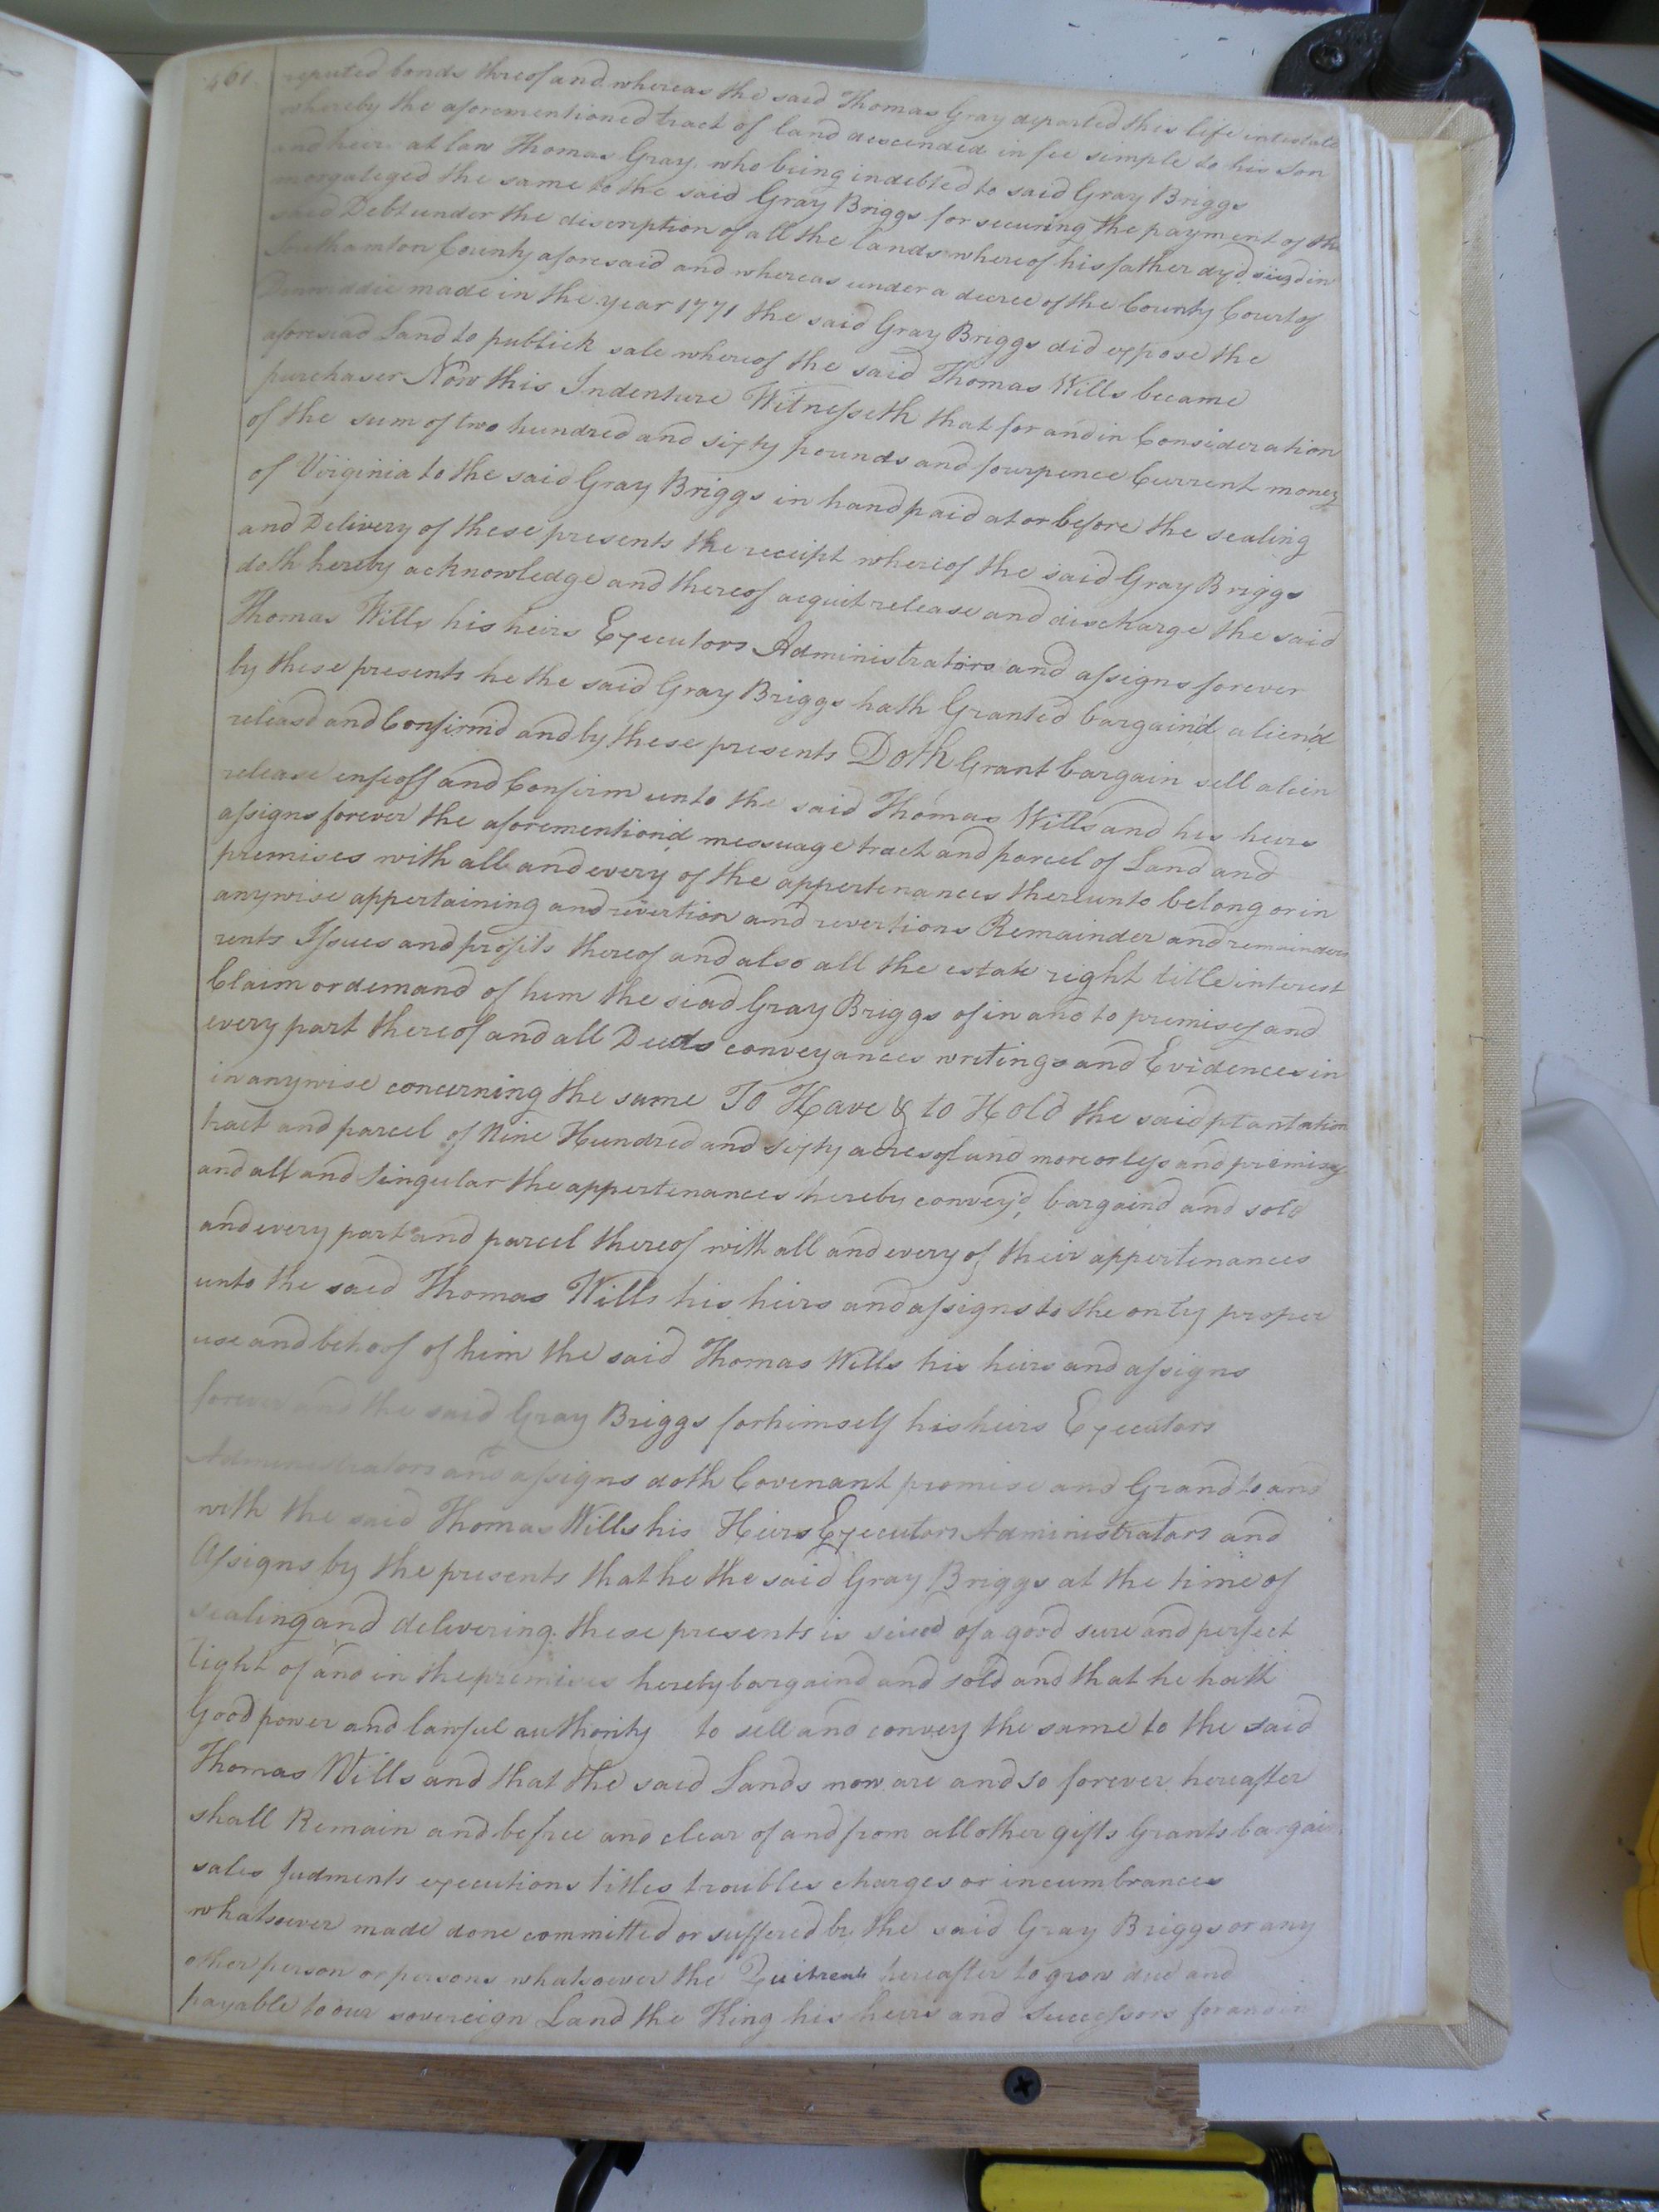 461.
reputed bonds thereof and whereas the said Thomas Gray departed this life intestate
whereby the aforementioned tract of land descended in fee simple to his son
and heir at law Thomas Gray who being indebted to said Gray Briggs
morgateged the same to the said Gray Briggs for securing the payment of the
said Debt under the discription of all the lands whereof his father dy'd siezd in
Southamton County aforesaid and whereas under a decree of the County Court of
Dinwiddie made in the year 1771 the said Gray Briggs did expose the
aforesaid Land to publick sale whereof the said Thomas Wills became
purchaser Now this Indenture Witnesseth that for and in Consideration
of the sum of two hundred and sixty pounds and fourpence Current money
of Virginia to the said Gray Briggs in hand paid at or before the sealing
and Delivery of these presents the receipt whereof the said Gray Briggs
doth hereby acknowledge and thereof acquit release and discharge the said
Thomas Wills his heirs Executors Administrators and assigns forever
by these presents he the said Gray Briggs hath Granted bargain'd alien'd
releasd and Confirmd and by these presents Doth Grant bargain sell alien
release enfeoff and Confirm unto the said Thomas Wills and his heirs
assigns forever the aforemention'd messuage tract and parcel of Land and
premises with all and every of the appertenances thereunto belong or in
anywise appertaining and revertion and revertions Remainder and remainders
rents Issues and profits thereof and also all the estate right title interest
Claim or demand of him the siad Gray Briggs of in and to premises and
every part thereof and all Deeds conveyances writings and Evidences in
in anywise concerning the same To Have & to Hold the said plantation
tract and parcel of Nine Hundred and sixty acres of land more or less and premises
and all and singular the appertenances hereby convey'd, bargaind and sold
and every part and parcel thereof with all and every of their appertenances
unto the said Thomas Wills his heirs and assigns to the only proper
use and behoof of him the said Thomas Wills his heirs and assigns
forever and the said Gray Briggs for himself his heirs Executors
Administrators and assigns doth Covenant promise and Grand to and
with the said Thomas Wills his Heirs Executors Administrators and
Assigns by the presents that he the said Gray Briggs at the time of
sealing and delivering these presents is seized of a good sure and perfect
right of and in the premises hereby bargaind and sold and that he hath
Good power and lawful authority to sell and convey the same to the said
Thomas Wills and that the said Lands now are and so forever hereafter
shall Remain and be free and clear of and from all other gifts Grants bargain
sales Judments executions titles troubles charges or incumbrances
whatsoever made done committed or suffered by the said Gray Briggs or any
other person or persons whatsoever the Quitrents hereafter to grow due and
payable to our sovereign Land the King his heirs and Successors for and in